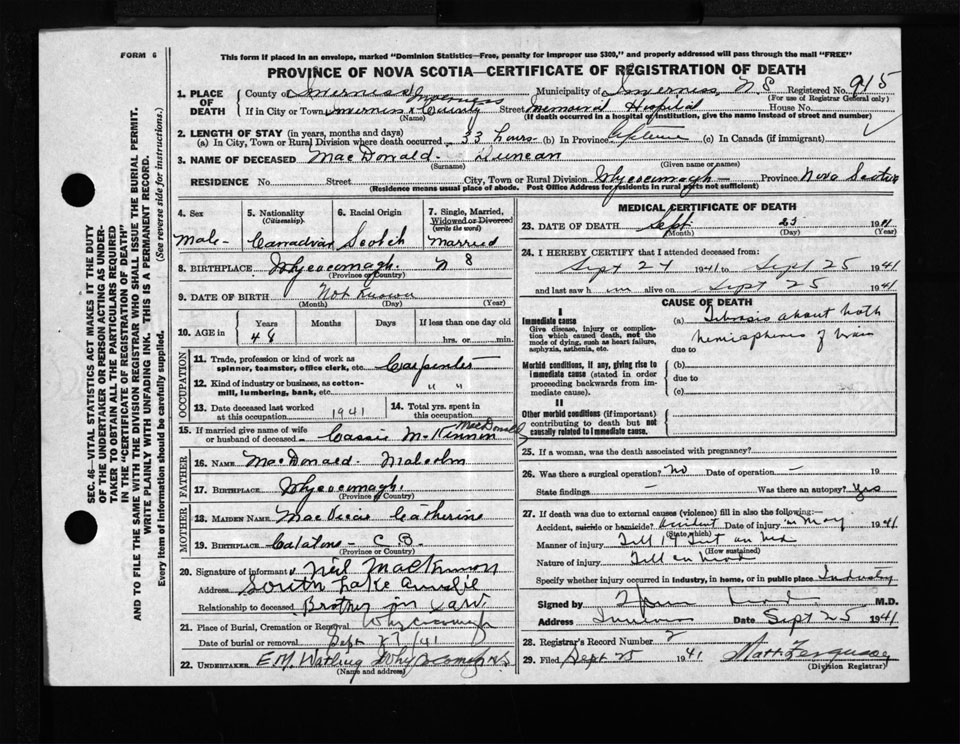 FORM 6
This form if placed in an envelope, marked "Dominion Statistics—Free, penalty for improper use $300," and properly addressed will pass through the mail "FREE"
PROVINCE OF NOVA SCOTIA—CERTIFICATE OF REGISTRATION OF DEATH
1. PLACE OF DEATH County of Inverness Municipality of Inverness, N.S Registered No. 915
(For use of Registrar General only)
If in City or Town Inverness County Street Memorial Hospital House No.
(Name) (If death occurred in a hospital or institution, give the name instead of street and number)
2. LENGTH OF STAY (in years, months and days)
(a) In City, Town or Rural Division where death occurred 33 hours (b) In Province (c) In Canada (if immigrant)
3. NAME OF DECEASED MacDonald Duncan
(Surname) (Given name or names)
RESIDENCE No. Street City, Town or Rural Division Whycocomagh Province Nova Scotia
(Residence means usual place of abode. Post Office Address for residents in rural parts not sufficient)
4. Sex
Male
5. Nationality (Citizenship)
Canadian
6. Racial Origin
Scotch
7. Single, Married, Widowed or Divorced (write the word)
Married
8. BIRTHPLACE Whycocomagh. N S
(Province or Country)
9. DATE OF BIRTH Not known
(Month) (Day) (Year)
10. AGE in Years Months Days If less than one day old
48 hrs. or min.
OCCUPATION
11. Trade, profession or kind of work as spinner, teamster, office clerk, etc. Carpenter
12. Kind of industry or business, as cotton-mill, lumbering, bank, etc. " "
13. Date deceased last worked at this occupation 1941
14. Total yrs. spent in this occupation
15. If married give name of wife or husband of deceased Cassie McKinnon MacDonald
FATHER
16. NAME MacDonald Malcolm
17. BIRTHPLACE Whycocomagh.
(Province or Country)
MOTHER
18. MAIDEN NAME Catherine
19. BIRTHPLACE C.B.
(Province or Country)
20. Signature of informant Neil MacKinnon
Address South Lake Ainslie
Relationship to deceased Brother in Law
21. Place of Burial, Cremation or Removal Whycocomagh
Date of burial or removal Sept 27 /41
22. UNDERTAKER E.M. Watling Whycocomagh N.S.
(Name and address)
MEDICAL CERTIFICATE OF DEATH
23. DATE OF DEATH Sept 25 1941
(Month) (Day) (Year)
24. I HEREBY CERTIFY that I attended deceased from:
Sept 24 1941 to Sept 25 1941
and last saw h im alive on Sept 25 1941
CAUSE OF DEATH
I
Immediate cause
Give disease, injury or complication which caused death, not the mode of dying, such as heart failure, asphyxia, asthenia, etc.
(a) Fibrosis about both
hemispheres of brain
due to
Morbid conditions, if any, giving rise to immediate cause (stated in order proceeding backwards from immediate cause).
(b)
due to
(c)
II
Other morbid conditions (if important) contributing to death but not causally related to immediate cause.
25. If a woman, was the death associated with pregnancy?
26. Was there a surgical operation? No Date of operation — 19
State findings — Was there an autopsy? Yes
27. If death was due to external causes (violence) fill in also the following:—
Accident, suicide or homicide? Accident Date of injury in May 1941
(State which)
Manner of injury Fell 14 feet on head
(How sustained)
Nature of injury Fell on head
Specify whether injury occurred in industry, in home, or in public place Industry
Signed by M.D.
Address Inverness Date Sept 25 1941
28. Registrar's Record Number 2
29. Filed Sept 25 1941 Matt. Ferguson
(Division Registrar)
SEC. 46—VITAL STATISTICS ACT MAKES IT THE DUTY
OF THE UNDERTAKER OR PERSON ACTING AS UNDER-
TAKER TO OBTAIN ALL THE PARTICULARS REQUIRED
IN THE "CERTIFICATE OF REGISTRATION OF DEATH"
AND TO FILE THE SAME WITH THE DIVISION REGISTRAR WHO SHALL ISSUE THE BURIAL PERMIT.
WRITE PLAINLY WITH UNFADING INK. THIS IS A PERMANENT RECORD.
Every item of information should be carefully supplied. (See reverse side for instructions.)